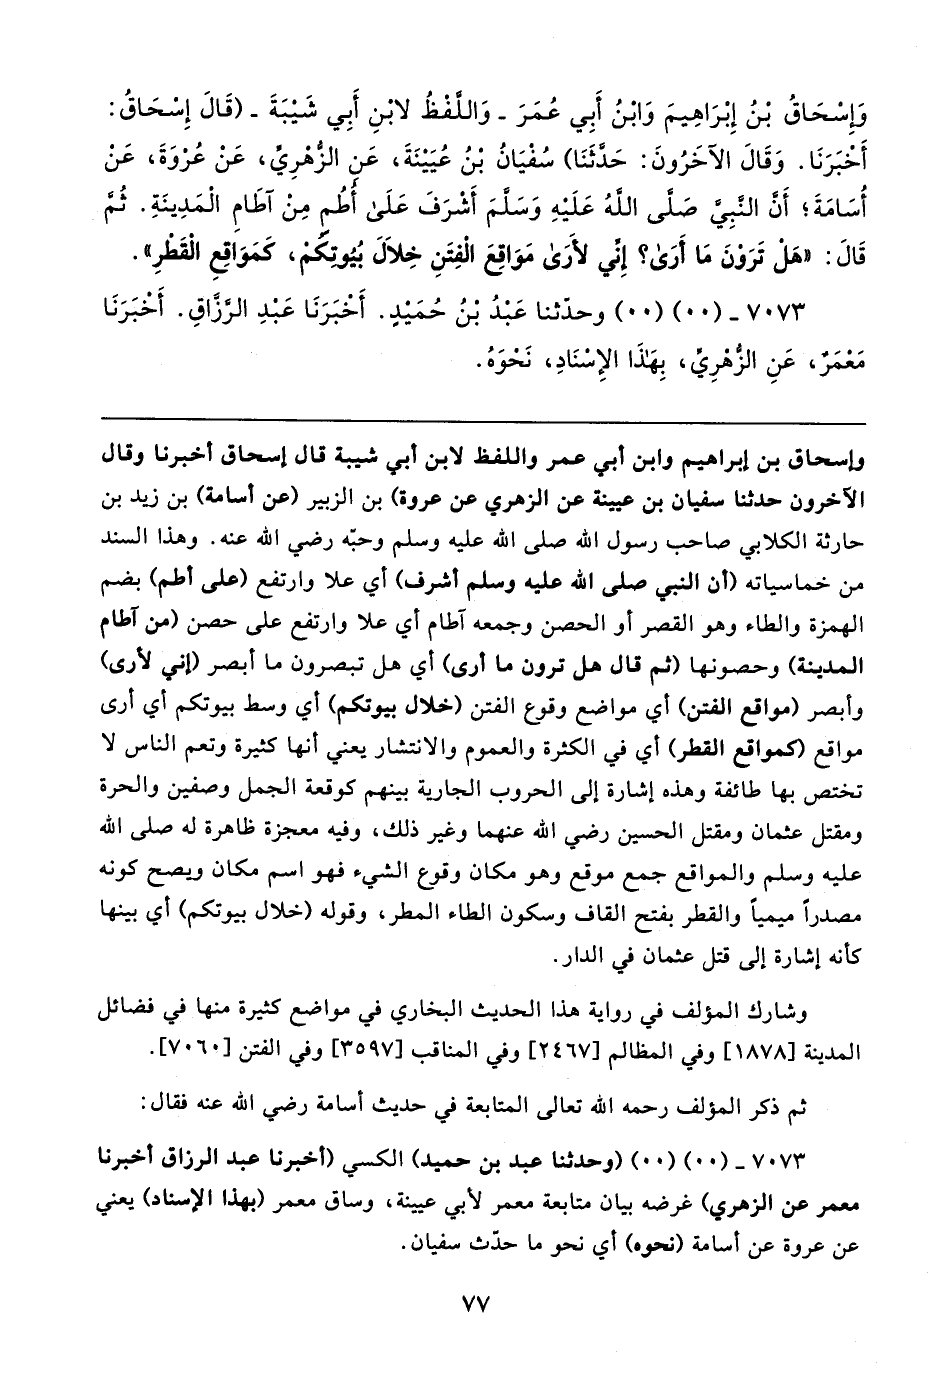 وَإِسْحَاقُ بْنُ إِبْرَاهِيمَ وَابْنُ أَبِي عُمَرَ ـ وَاللَّفْظُ لابْنِ أَبِي شَيْبَةَ ـ (قَالَ إِسْحَاقُ:
أَخْبَرَنَا. وَقَالَ الآخَرُونَ: حَدَّثَنَا) سُفْيَانُ بْنُ عُيَيْنَةَ، عَنِ الزُّهْرِيِّ، عَنْ عُرْوَةَ، عَنْ
أُسَامَةَ؛ أَنَّ النَّبِيَّ صَلَّى اللَّهُ عَلَيْهِ وَسَلَّمَ أَشْرَفَ عَلَىٰ أُطُمٍ مِنْ آطَامِ الْمَدِينَةِ. ثُمَّ
قَالَ: «هَلْ تَرَوْنَ مَا أَرَىٰ؟ إِنِّي لأَرَىٰ مَوَاقِعَ الْفِتَنِ خِلاَلَ بُيُوتِكُمْ، كَمَوَاقِعِ الْقَطْرِ».
٧٠٧٣ ـ (٠٠) (٠٠) وحدّثنا عَبْدُ بْنُ حُمَيْدٍ. أَخْبَرَنَا عَبْدِ الرَّزَّاقِ. أَخْبَرَنَا
مَعْمَرٌ، عَنِ الزُّهْرِيِّ، بِهَٰذَا الإِسْنَادِ، نَحْوَهُ.
وإسحاق بن إبراهيم وابن أبي عمر واللفظ لابن أبي شيبة قال إسحاق أخبرنا وقال
الآخرون حدثنا سفيان بن عيينة عن الزهري عن عروة) بن الزبير (عن أسامة) بن زيد بن
حارثة الكلابي صاحب رسول الله صلى الله عليه وسلم وحبّه رضي الله عنه. وهذا السند
من خماسياته (أن النبي صلى الله عليه وسلم أشرف) أي علا وارتفع (على أطم) بضم
الهمزة والطاء وهو القصر أو الحصن وجمعه آطام أي علا وارتفع على حصن (من آطام
المدينة) وحصونها (ثم قال هل ترون ما أرى) أي هل تبصرون ما أبصر (إني لأرى)
وأبصر (مواقع الفتن) أي مواضع وقوع الفتن (خلال بيوتكم) أي وسط بيوتكم أي أرى
مواقع (كمواقع القطر) أي في الكثرة والعموم والانتشار يعني أنها كثيرة وتعم الناس لا
تختص بها طائفة وهذه إشارة إلى الحروب الجارية بينهم كوقعة الجمل وصفين والحرة
ومقتل عثمان ومقتل الحسين رضي الله عنهما وغير ذلك، وفيه معجزة ظاهرة له صلى الله
عليه وسلم والمواقع جمع موقع وهو مكان وقوع الشيء فهو اسم مكان ويصح كونه
مصدراً ميمياً والقطر بفتح القاف وسكون الطاء المطر، وقوله (خلال بيوتكم) أي بينها
كأنه إشارة إلى قتل عثمان في الدار.
وشارك المؤلف في رواية هذا الحديث البخاري في مواضع كثيرة منها في فضائل
المدينة [١٨٧٨] وفي المظالم [٢٤٦٧] وفي المناقب [٣٥٩٧] وفي الفتن [٧٠٦٠].
ثم ذكر المؤلف رحمه الله تعالى المتابعة في حديث أسامة رضي الله عنه فقال:
٧٠٧٣ ـ (٠٠) (٠٠) (وحدثنا عبد بن حميد) الكسي (أخبرنا عبد الرزاق أخبرنا
معمر عن الزهري) غرضه بيان متابعة معمر لأبي عيينة، وساق معمر (بهذا الإسناد) يعني
عن عروة عن أسامة (نحوه) أي نحو ما حدّث سفيان.
٧٧